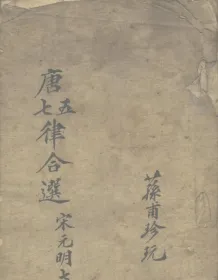 甫珍玩
唐五七律合選
宋元明七